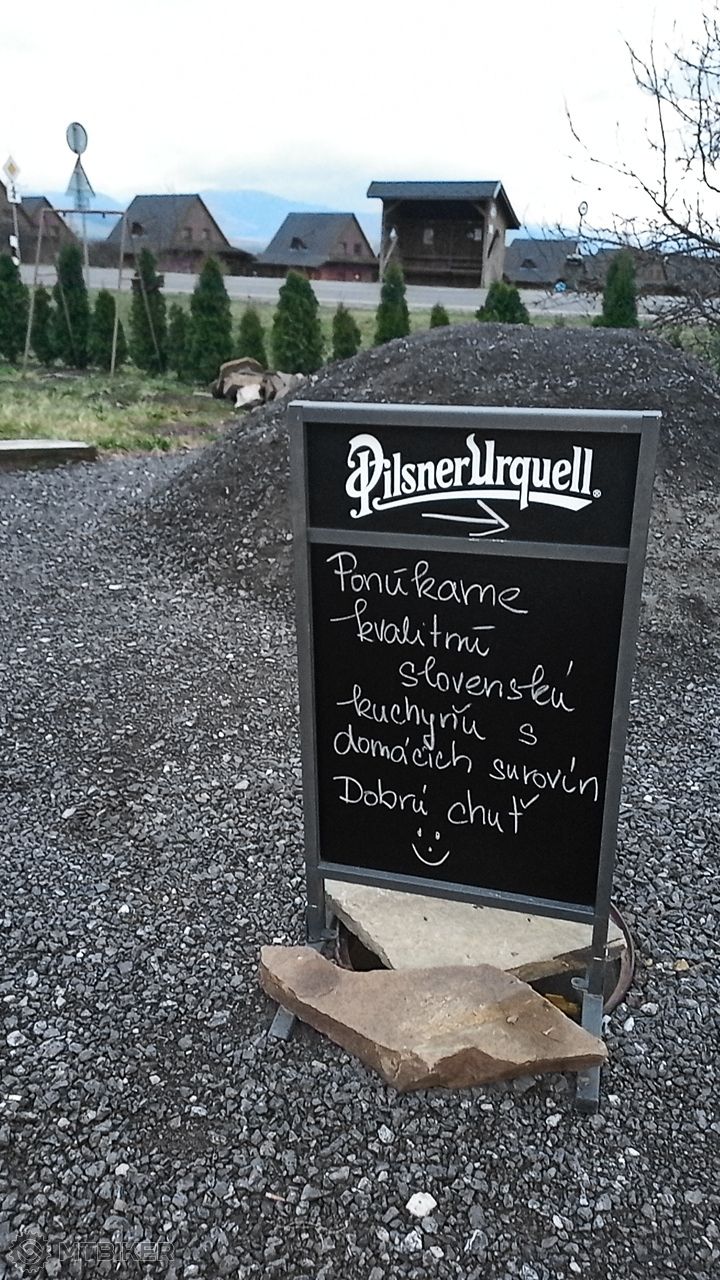 Pilsner Urquell®
Ponúkame
kvalitnú
slovenskú
kuchyňu s
domácich surovín
Dobrú chuť
MTBIKER